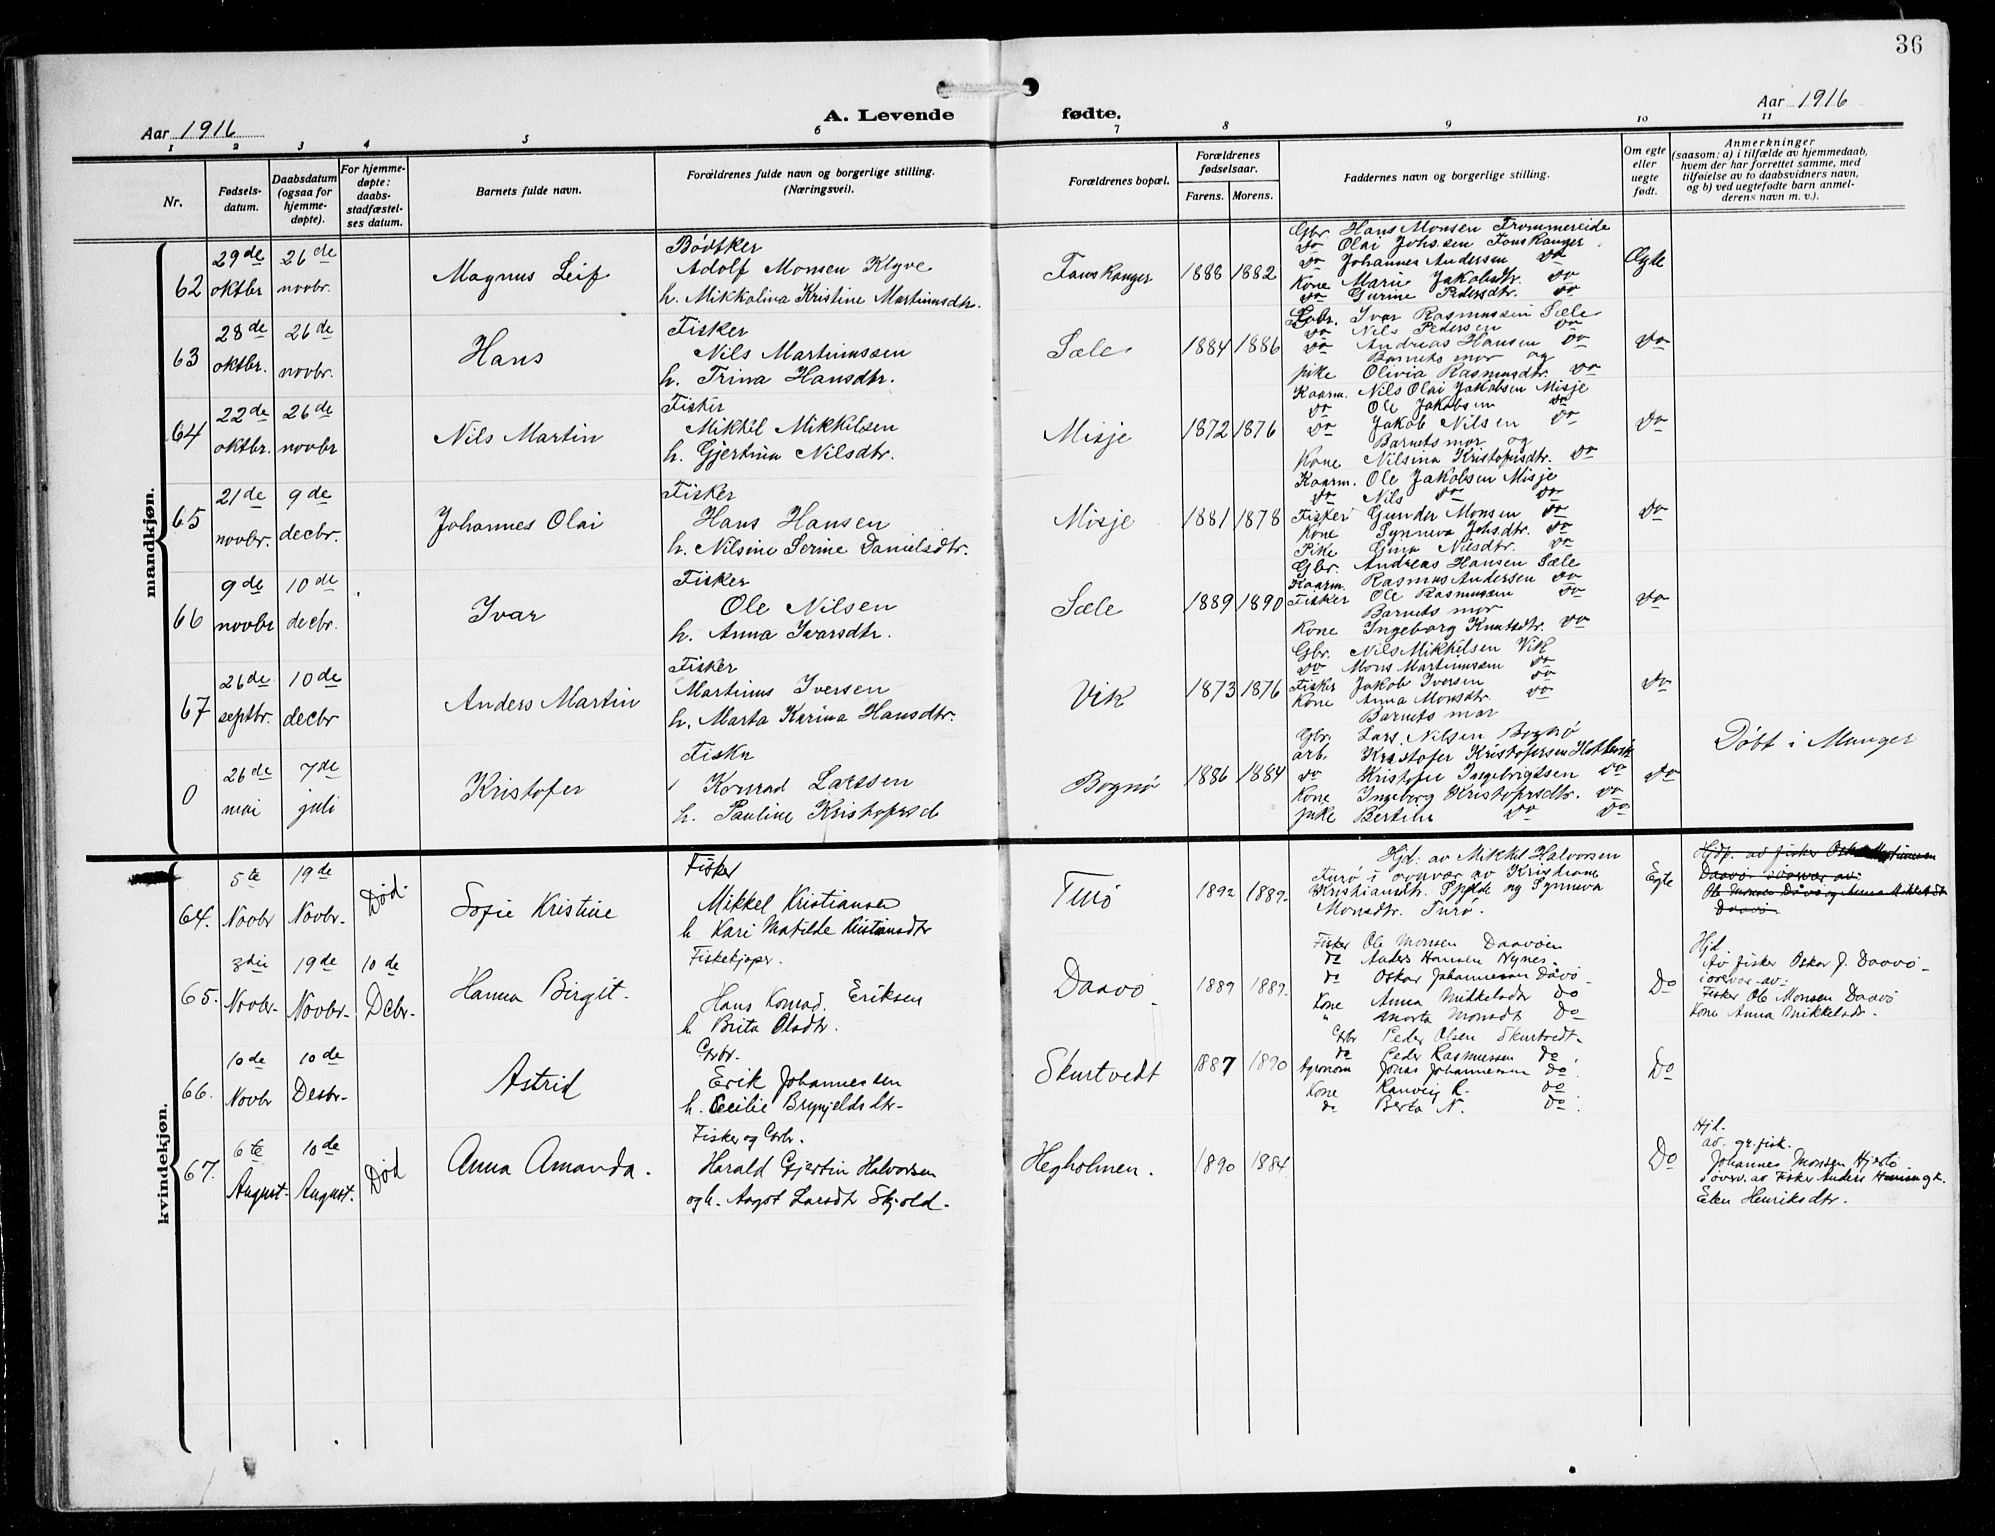 36
Aar 1916
A. Levende fødte.
Aar 1916
1 2 3 4 5 6 7 8 9 10 11
Nr.
Fødsels-
datum.
Daabsdatum
(ogsaa for
hjemme-
døpte).
For hjemme-
døpte:
daabs-
stadfæstel-
ses datum.
Barnets fulde navn.
Forældrenes fulde navn og borgerlige stilling.
(Næringsvei).
Forældrenes bopæl.
Forældrenes
fødselsaar.
Farens. Morens.
Faddernes navn og borgerlige stilling.
Om egte
eller
uegte
født.
Anmerkninger
(saasom: a) i tilfælde av hjemmedaab,
hvem der har forrettet samme, med
tilføielse av to daabsvidners navn,
og b) ved uegtefødte barn anmel-
derens navn m. v.).
mandkjøn.
62
29de
oktbr
26de
novbr.
Magnus Leif
Bødtker
Adolf Monsen Klyve
h. Mikkalina Kristine Martinusdtr.
Fanskanger
1888 1882
Gbr Hans Monsen Trommereide
do Olai Johssen Fanskanger
do Johannes Andersen do
Kone Marie Jakobsdtr. do
do Gurine Pedersdtr. do
Ægte
63
28de
oktbr.
26de
novbr.
Hans
Fisker
Nils Martinussen
h. Trina Hansdtr.
Sæle
1884 1886
Gbr. Ivar Rasmussen Sæle
do Nils Pedersen do
do Andreas Hansen do
Barnets mor og
pike Olivia Rasmusdtr. do
do
64
22de
oktbr.
26de
novbr
Nils Martin
Fisker
Mikkel Mikkelsen
h. Gjertina Nilsdtr.
Misje
1872 1876
Kaarm. Nils Olai Jakobsen Misje
do Ole Jakobsen do
do Jakob Nilsen do
Barnets mor og
Kone Nilsina Kristofersdtr. do
do
65
21de
novbr.
9de
decbr.
Johannes Olai
Fisker
Hans Hansen
h. Nilsine Serine Danielsdtr.
Misje
1881 1878
Kaarm. Ole Jakobsen Misje
do Nils do do
Fisker Gunder Monsen do
Kone Synneva Johsdtr. do
Pike Gina Nilsdtr. do
do
66
9de
novbr
10de
decbr.
Ivar
Fisker
Ole Nilsen
h. Anna Ivarsdtr.
Sæle
1889 1890
Gbr. Andreas Hansen Sæle
Kaarm. Rasmus Andersen do
Fisker Ole Rasmussen do
Barnets mor
Kone Ingeborg Knutsdtr. do
do
67
26de
septbr.
10de
decbr
Anders Martin
Fisker
Martinus Iversen
h. Marta Karina Hansdtr.
Vik
1873 1876
Gbr. Nils Mikkelsen Vik
do Mons Martinussen do
Fisker Jakob Iversen do
Kone Anna Monsdtr. do
Barnets mor
do
0
26de
mai
7de
juli
Kristofer
Fisker
Konrad Larssen
h. Pauline Kristofersd
Bognø
1886 1884
Gbr. Lars Nilsen Bognø
arb. Kristofer Kristofersen
do Kristofer Ingebrigtsen do
Kone Ingeborg Kristofersdtr. do
pike Bertine do do
do
Døbt i Manger
kvindekjøn.
64.
5te
Novbr
19de
Novbr.
Død.
Sofie Kristine
Fisker
Mikkel Kristiansen
h Kari Matilde Kristiansdtr
Turø
1892 1889.
Hjd: av Mikkel Halvorsen
Turø i overvær av Kristiane
Kristiansdtr. og Synneva
Monsdtr. Turø.
Egte
Hjdp. av fisker Oskar
Daavø i overvær av
Ole Monsen Daavø og Anna Mikkelsdt
Daavø
65.
3die
Novbr-
19de
Novbr-
10de
Debr-
Hanna Birgit.
Fiskekjøper.
Hans Konrad. Eriksen
h Brita Olsdtr.
Daavø
1889 1889.
Fisker Ole Monsen Daavøen
do Anders Hansen Nynes.
do Oskar Johannessen Davø
Kone Anna Mikkelsdtr do
" Marta Monsdt do
Do
Hjd
Av fisker Oskar J. Daavø-
i overvær av-
Fisker Ole Monsen Daavø
Kone Anna Mikkelsdr.
66.
10de
Novbr
10de
Desbr-
Astrid
Gbr-
Erik Johannessen
h. Cecilie Brynjeldsdtr-
Skurtvedt
1887 1890
Gbr Peder Olsen Skurtvedt-
do Peder Rasmussen do
Agronom Jonas Johannessen do.
Kone Ranveig R. do.
do Berta N. do.
Do
67.
6te
August.
10de
August.
Død
Anna Amanda.
Fisker og Gbr.
Harald Gjertin Halvorsen
og h. Aagot Larsdtr Skjold.
Hegholmen.
1890 1884
Do
Hjd-
av gr. fisk.
Johannes Monsen Hjertø
i overv. av Fisker Anders Hansen g k.
Elen Henriksdtr.